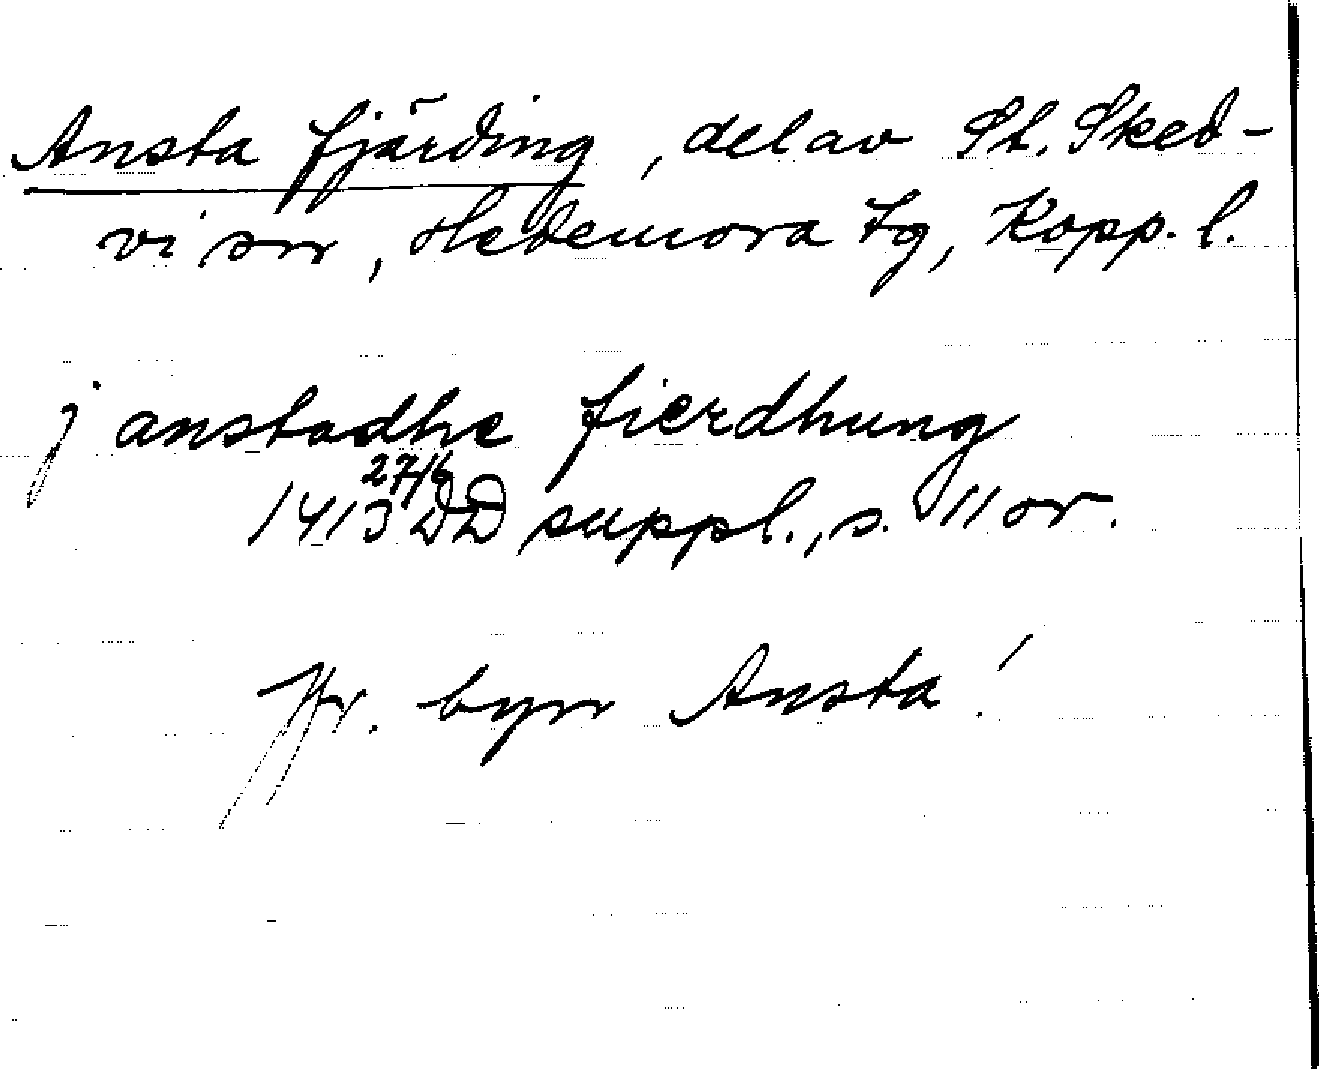 Ansta fjärding, del av St. Sked-
vi snr, Hedemora tg, Kopp. l.
j anstadhe fierdhung
27/6
1413 DD suppl., s. 11 or.
Jfr. byn Ansta!